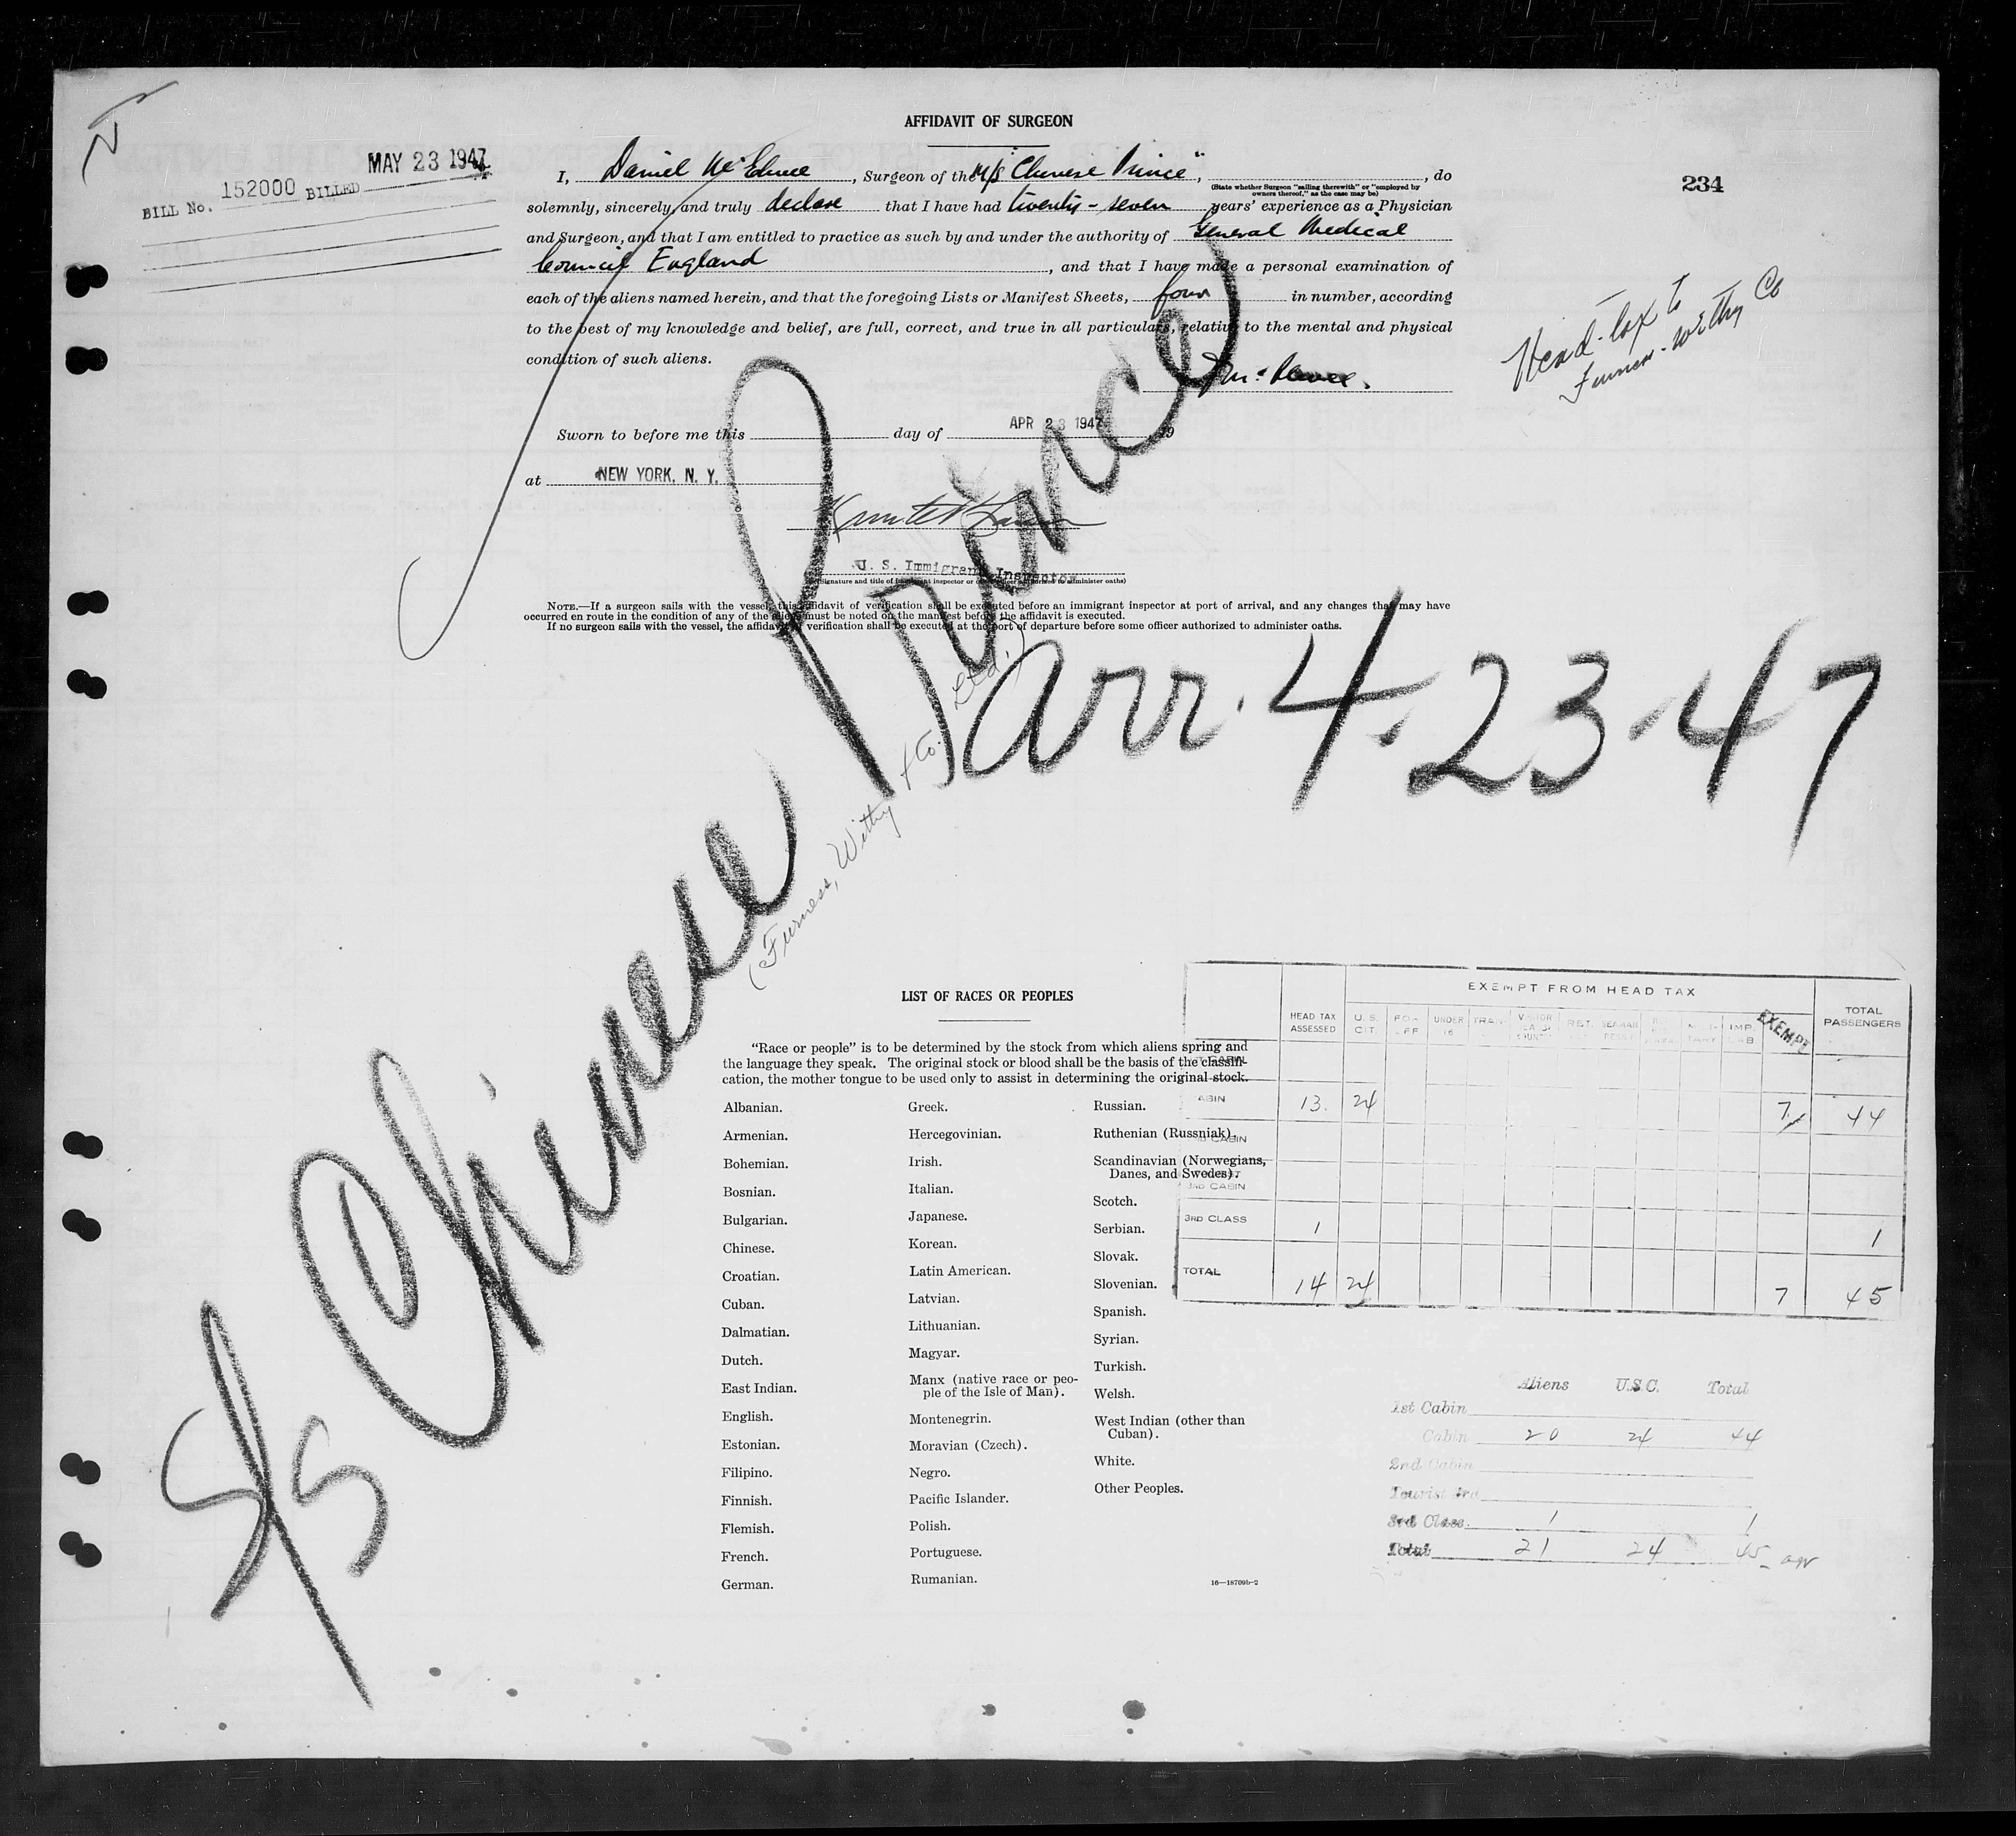 AFFIDAVIT OF SURGEON
234
MAY 23 1947
BILL No. 152000 BILLED
I, Daniel , Surgeon of the M/S "Chinese Prince", , do
(State whether Surgeon "sailing therewith" or "employed by
owners thereof," as the case may be)
solemnly, sincerely and truly declare that I have had twenty-seven years' experience as a Physician
and Surgeon, and that I am entitled to practice as such by and under the authority of General Medical
Council England , and that I have made a personal examination of
each of the aliens named herein, and that the foregoing Lists or Manifest Sheets, four in number, according
to the best of my knowledge and belief, are full, correct, and true in all particulars, relative to the mental and physical
condition of such aliens.
Head-tax to
Furness-Withy Co
Sworn to before me this day of APR 23 1947 19
at NEW YORK, N. Y.
U. S. Immigrant Inspector
(Signature and title of immigrant inspector or other officer authorized to administer oaths)
NOTE.—If a surgeon sails with the vessel, this affidavit of verification shall be executed before an immigrant inspector at port of arrival, and any changes that may have
occurred en route in the condition of any of the aliens must be noted on the manifest before the affidavit is executed.
If no surgeon sails with the vessel, the affidavit of verification shall be executed at the port of departure before some officer authorized to administer oaths.
S/S Chinese Prince
arr. 4-23-47
(Furness, Withy & Co. Ltd.)
LIST OF RACES OR PEOPLES
"Race or people" is to be determined by the stock from which aliens spring and
the language they speak. The original stock or blood shall be the basis of the classifi-
cation, the mother tongue to be used only to assist in determining the original stock.
Albanian.
Armenian.
Bohemian.
Bosnian.
Bulgarian.
Chinese.
Croatian.
Cuban.
Dalmatian.
Dutch.
East Indian.
English.
Estonian.
Filipino.
Finnish.
Flemish.
French.
German.
Greek.
Hercegovinian.
Irish.
Italian.
Japanese.
Korean.
Latin American.
Latvian.
Lithuanian.
Magyar.
Manx (native race or peo-
ple of the Isle of Man).
Montenegrin.
Moravian (Czech).
Negro.
Pacific Islander.
Polish.
Portuguese.
Rumanian.
Russian.
Ruthenian (Russniak).
Scandinavian (Norwegians,
Danes, and Swedes).
Scotch.
Serbian.
Slovak.
Slovenian.
Spanish.
Syrian.
Turkish.
Welsh.
West Indian (other than
Cuban).
White.
Other Peoples.
16—18709b-2
EXEMPT FROM HEAD TAX
HEAD TAX ASSESSED U.S. CIT. UNDER 16 EXEMPT TOTAL PASSENGERS
CABIN 13 24 7 44
3RD CABIN
3RD CLASS 1 1
TOTAL 14 24 7 45
Aliens U.S.C. Total
1st Cabin
Cabin 20 24 44
2nd Cabin
Tourist 3rd
3rd Class 1 1
Total 21 24 45